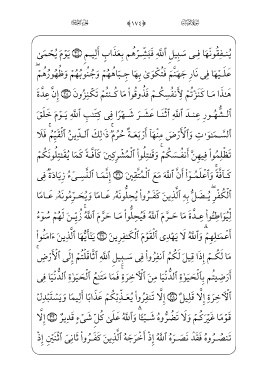 يُنفِقُونَهَا فِى سَبِيلِ ٱللَّهِ فَبَشِّرْهُم بِعَذَابٍ أَلِيمٍ يَوْمَ يُحْمَىٰ
عَلَيْهَا فِى نَارِ جَهَنَّمَ فَتُكْوَىٰ بِهَا جِبَاهُهُمْ وَجُنُوبُهُمْ وَظُهُورُهُمْ
هَٰذَا مَا كَنَزْتُمْ لِأَنفُسِكُمْ فَذُوقُوا۟ مَا كُنتُمْ تَكْنِزُونَ إِنَّ عِدَّةَ
ٱلشُّهُورِ عِندَ ٱللَّهِ ٱثْنَا عَشَرَ شَهْرًا فِى كِتَٰبِ ٱللَّهِ يَوْمَ خَلَقَ
ٱلسَّمَٰوَٰتِ وَٱلْأَرْضَ مِنْهَآ أَرْبَعَةٌ حُرُمٌ ذَٰلِكَ ٱلدِّينُ ٱلْقَيِّمُ فَلَا
تَظْلِمُوا۟ فِيهِنَّ أَنفُسَكُمْ وَقَٰتِلُوا۟ ٱلْمُشْرِكِينَ كَآفَّةً كَمَا يُقَٰتِلُونَكُمْ
كَآفَّةً وَٱعْلَمُوٓا۟ أَنَّ ٱللَّهَ مَعَ ٱلْمُتَّقِينَ إِنَّمَا ٱلنَّسِىٓءُ زِيَادَةٌ فِى
ٱلْكُفْرِ يُضَلُّ بِهِ ٱلَّذِينَ كَفَرُوا۟ يُحِلُّونَهُۥ عَامًا وَيُحَرِّمُونَهُۥ عَامًا
لِّيُوَاطِـُٔوا۟ عِدَّةَ مَا حَرَّمَ ٱللَّهُ فَيُحِلُّوا۟ مَا حَرَّمَ ٱللَّهُ زُيِّنَ لَهُمْ سُوٓءُ
أَعْمَٰلِهِمْ وَٱللَّهُ لَا يَهْدِى ٱلْقَوْمَ ٱلْكَٰفِرِينَ يَٰٓأَيُّهَا ٱلَّذِينَ ءَامَنُوا۟
مَا لَكُمْ إِذَا قِيلَ لَكُمُ ٱنفِرُوا۟ فِى سَبِيلِ ٱللَّهِ ٱثَّاقَلْتُمْ إِلَى ٱلْأَرْضِ
أَرَضِيتُم بِٱلْحَيَوٰةِ ٱلدُّنْيَا مِنَ ٱلْءَاخِرَةِ فَمَا مَتَٰعُ ٱلْحَيَوٰةِ ٱلدُّنْيَا فِى
ٱلْءَاخِرَةِ إِلَّا قَلِيلٌ إِلَّا تَنفِرُوا۟ يُعَذِّبْكُمْ عَذَابًا أَلِيمًا وَيَسْتَبْدِلْ
قَوْمًا غَيْرَكُمْ وَلَا تَضُرُّوهُ شَيْـًٔا وَٱللَّهُ عَلَىٰ كُلِّ شَىْءٍ قَدِيرٌ إِلَّا
تَنصُرُوهُ فَقَدْ نَصَرَهُ ٱللَّهُ إِذْ أَخْرَجَهُ ٱلَّذِينَ كَفَرُوا۟ ثَانِىَ ٱثْنَيْنِ إِذْ